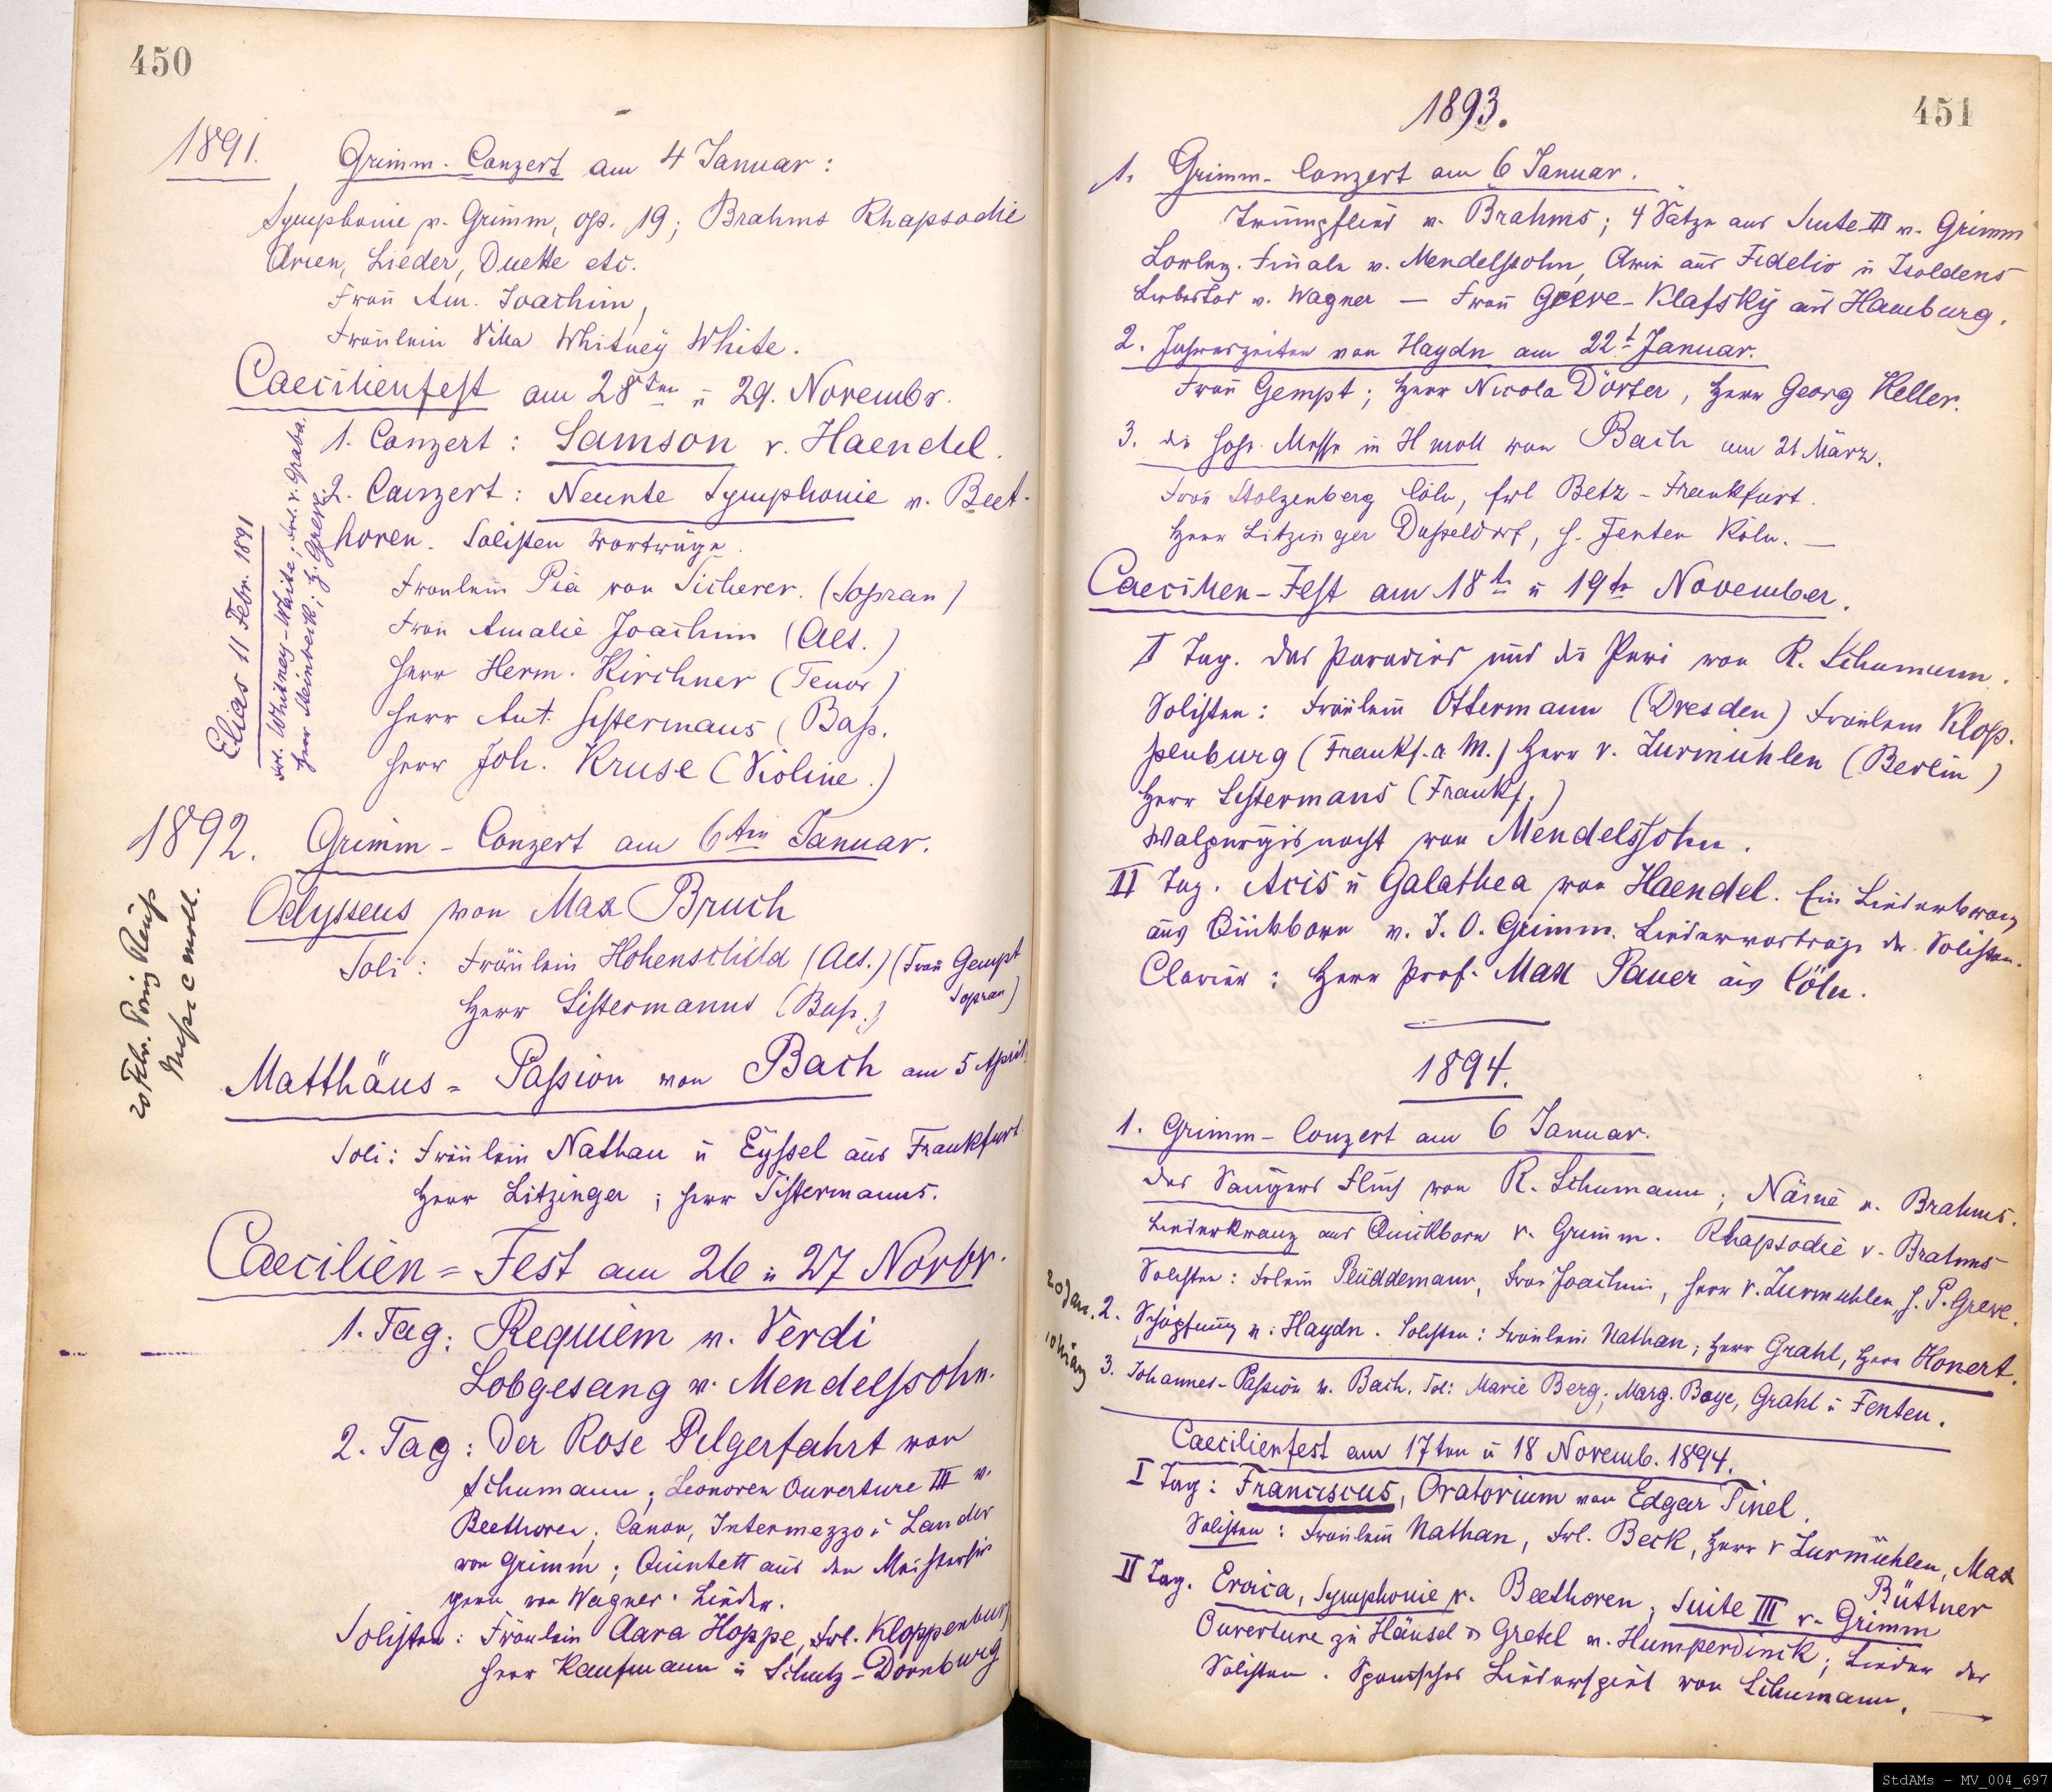 450
1891. Grimm-Conzert am 4 Januar:
Symphonie v. Grimm, op. 19; Brahms Rhapsodie
Arien, Lieder, Duette etc.
Frau Am. Joachim,
Fräulein Villa Whitney White.
Caecilienfest am 28ten u 29. Novembr.
1. Conzert: Samson v. Haendel.
2. Conzert: Neunte Symphonie v. Beet-
hoven. Solisten Vorträge.
Fräulein Pia von Sicherer. (Sopran)
Frau Amalie Joachim (Alt.)
Herr Herm. Kirchner (Tenor)
Herr Ant. Sistermans (Baß.
Herr Joh. Kruse (Violine.)
Elias 11 Febr. 1891
Frl. Whitney-White; Frl. v. Graba.
Herr Meinbeck; H. Greve.
1892. Grimm-Conzert am 6ten Januar.
Odysseus von Max Bruch
Soli: Fräulein Hohenschild (Alt.) (Frau Gempt
Herr Sistermanns (Baß.) Sopran)
20 Febr.
Messe c moll.
Matthäus=Passion von Bach am 5 April
Soli: Fräulein Nathan u Eyssel aus Frankfurt
Herr Litzinger; Herr Sistermanns.
Caecilien=Fest am 26 u 27 Novbr.
1. Tag: Requiem v. Verdi
Lobgesang v. Mendelssohn.
2. Tag: Der Rose Pilgerfahrt von
Schumann; Leonoren Ouverture III v.
Beethoven; Canon, Intermezzo u Lander
von Grimm; Quintett aus den Meistersin
gern von Wagner. Lieder.
Solisten: Fräulein Clara Hoppe, Frl. Kloppenburg
Herr Kaufmann u Schutz-Dornburg
451
1893.
1. Grimm-Conzert am 6 Januar.
Triumpflied v. Brahms; 4 Sätze aus Suite III v. Grimm
Loreley. Finale v. Mendelssohn, Arie aus Fidelio u Isoldens
Liebestod v. Wagner — Frau Greve-Klafsky aus Hamburg.
2. Jahreszeiten von Haydn am 22t Januar.
Frau Gempt; Herr Nicola Dörter, Herr Georg Keller.
3. die hohe Messe in H moll von Bach am 21 März.
Frau Stolzenberg Cöln, Frl Betz-Frankfurt.
Herr Litzinger Düsseldorf, H. Fenten Köln. —
Caecilien-Fest am 18t u 19te November.
I Tag. Das Paradies und die Peri von R. Schumann.
Solisten: Fräulein Ottermann (Dresden) Fräulein Klop-
penburg (Frankf. a M.) Herr v. Zurmühlen (Berlin)
Herr Sistermans (Frankf.)
Walpurgisnacht von Mendelssohn.
II Tag. Acis u Galathea von Haendel. Ein Liederkranz
aus Quickborn v. J. O. Grimm. Liedervorträge der Solisten.
Clavier: Herr Prof. Max Pauer aus Cöln.
1894.
1. Grimm-Conzert am 6 Januar.
Des Sängers Fluch von R. Schumann; Nänie v. Brahms.
Liederkranz aus Quickborn v. Grimm. Rhapsodie v. Brahms
Solisten: Frlein Plüddemann, Frau Joachim, Herr v. Zurmuhlen, H. P. Greve.
20 Jan. 2. Schöpfung v. Haydn. Solisten: Fräulein Nathan; Herr Grahl, Herr Honert.
10 März 3. Johannes-Passion v. Bach. Sol: Marie Berg; Marg. Boye, Grahl u Fenten.
Caecilienfest am 17ten u 18 Novemb. 1894.
I Tag: Franciscus, Oratorium von Edgar Tinel.
Solisten: Fräulein Nathan, Frl. Beck, Herr v Zurmühlen, Max
Büttner
II Tag. Eroica, Symphonie v. Beethoven; Suite III v. Grimm
Ouverture zu Hänsel u Gretel v. Humperdinck; Lieder der
Solisten. Spanisches Liederspiel von Schumann.
StdAMs - MV_004_697